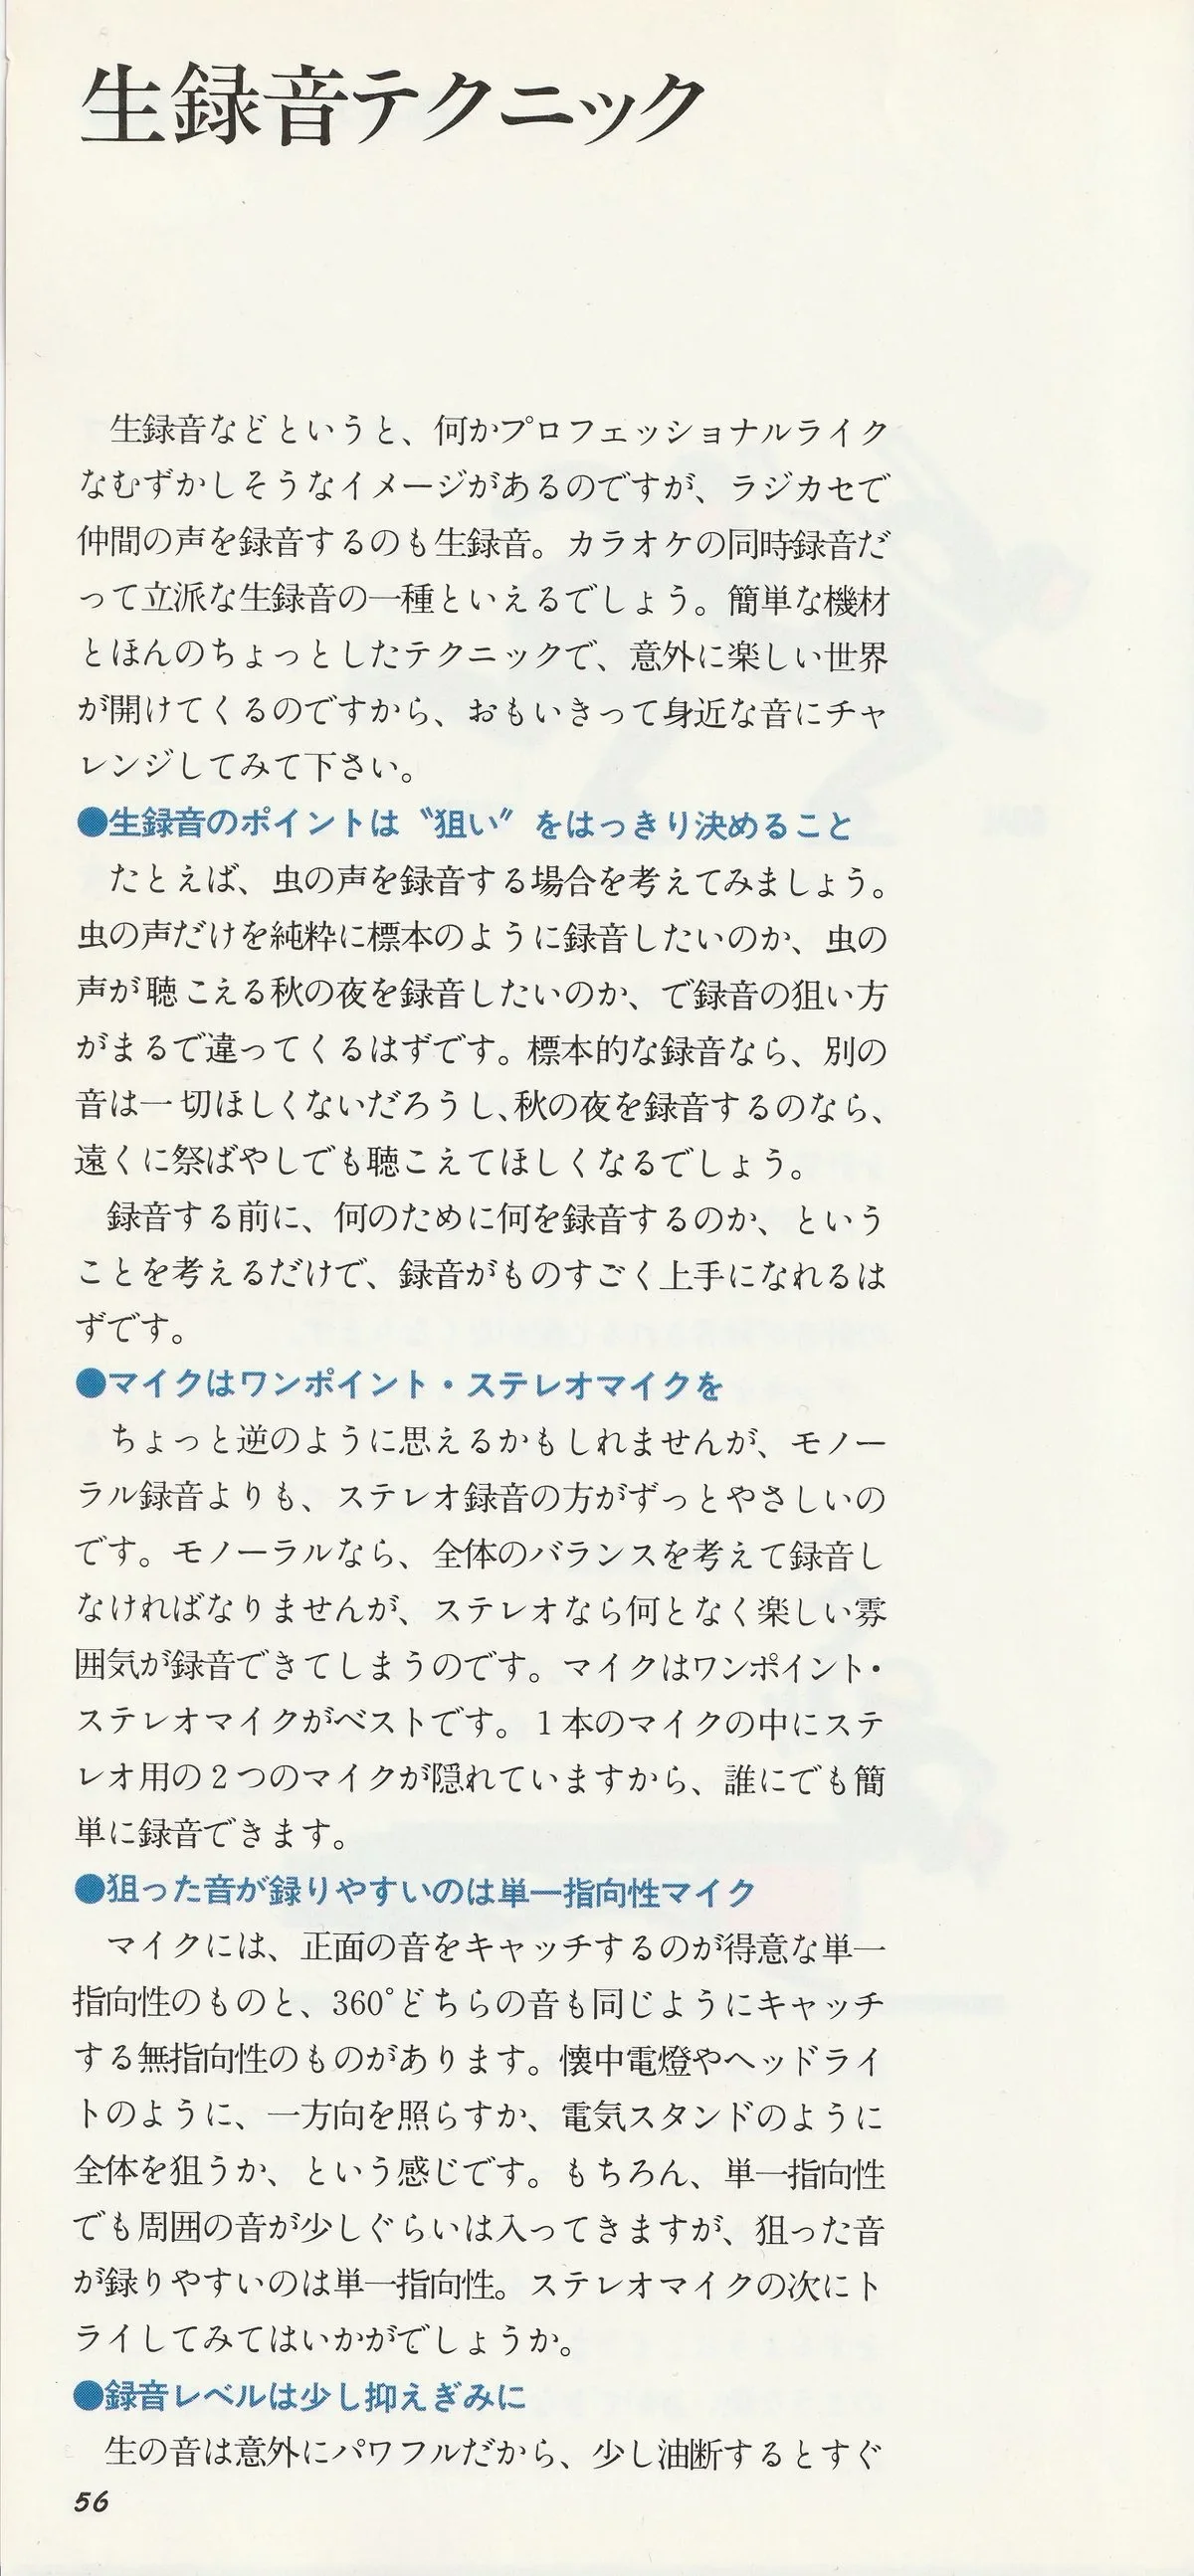 生録音テクニック
生録音などというと、何かプロフェッショナルライク
なむずかしそうなイメージがあるのですが、ラジカセで
仲間の声を録音するのも生録音。カラオケの同時録音だ
って立派な生録音の一種といえるでしょう。簡単な機材
とほんのちょっとしたテクニックで、意外に楽しい世界
が開けてくるのですから、おもいきって身近な音にチャ
レンジしてみて下さい。
●生録音のポイントは〝狙い〟をはっきり決めること
たとえば、虫の声を録音する場合を考えてみましょう。
虫の声だけを純粋に標本のように録音したいのか、虫の
声が聴こえる秋の夜を録音したいのか、で録音の狙い方
がまるで違ってくるはずです。標本的な録音なら、別の
音は一切ほしくないだろうし、秋の夜を録音するのなら、
遠くに祭ばやしでも聴こえてほしくなるでしょう。
録音する前に、何のために何を録音するのか、という
ことを考えるだけで、録音がものすごく上手になれるは
ずです。
●マイクはワンポイント・ステレオマイクを
ちょっと逆のように思えるかもしれませんが、モノー
ラル録音よりも、ステレオ録音の方がずっとやさしいの
です。モノーラルなら、全体のバランスを考えて録音し
なければなりませんが、ステレオなら何となく楽しい雰
囲気が録音できてしまうのです。マイクはワンポイント・
ステレオマイクがベストです。1本のマイクの中にステ
レオ用の2つのマイクが隠れていますから、誰にでも簡
単に録音できます。
●狙った音が録りやすいのは単一指向性マイク
マイクには、正面の音をキャッチするのが得意な単一
指向性のものと、360°どちらの音も同じようにキャッチ
する無指向性のものがあります。懐中電燈やヘッドライ
トのように、一方向を照らすか、電気スタンドのように
全体を狙うか、という感じです。もちろん、単一指向性
でも周囲の音が少しぐらいは入ってきますが、狙った音
が録りやすいのは単一指向性。ステレオマイクの次にト
ライしてみてはいかがでしょうか。
●録音レベルは少し抑えぎみに
生の音は意外にパワフルだから、少し油断するとすぐ
56